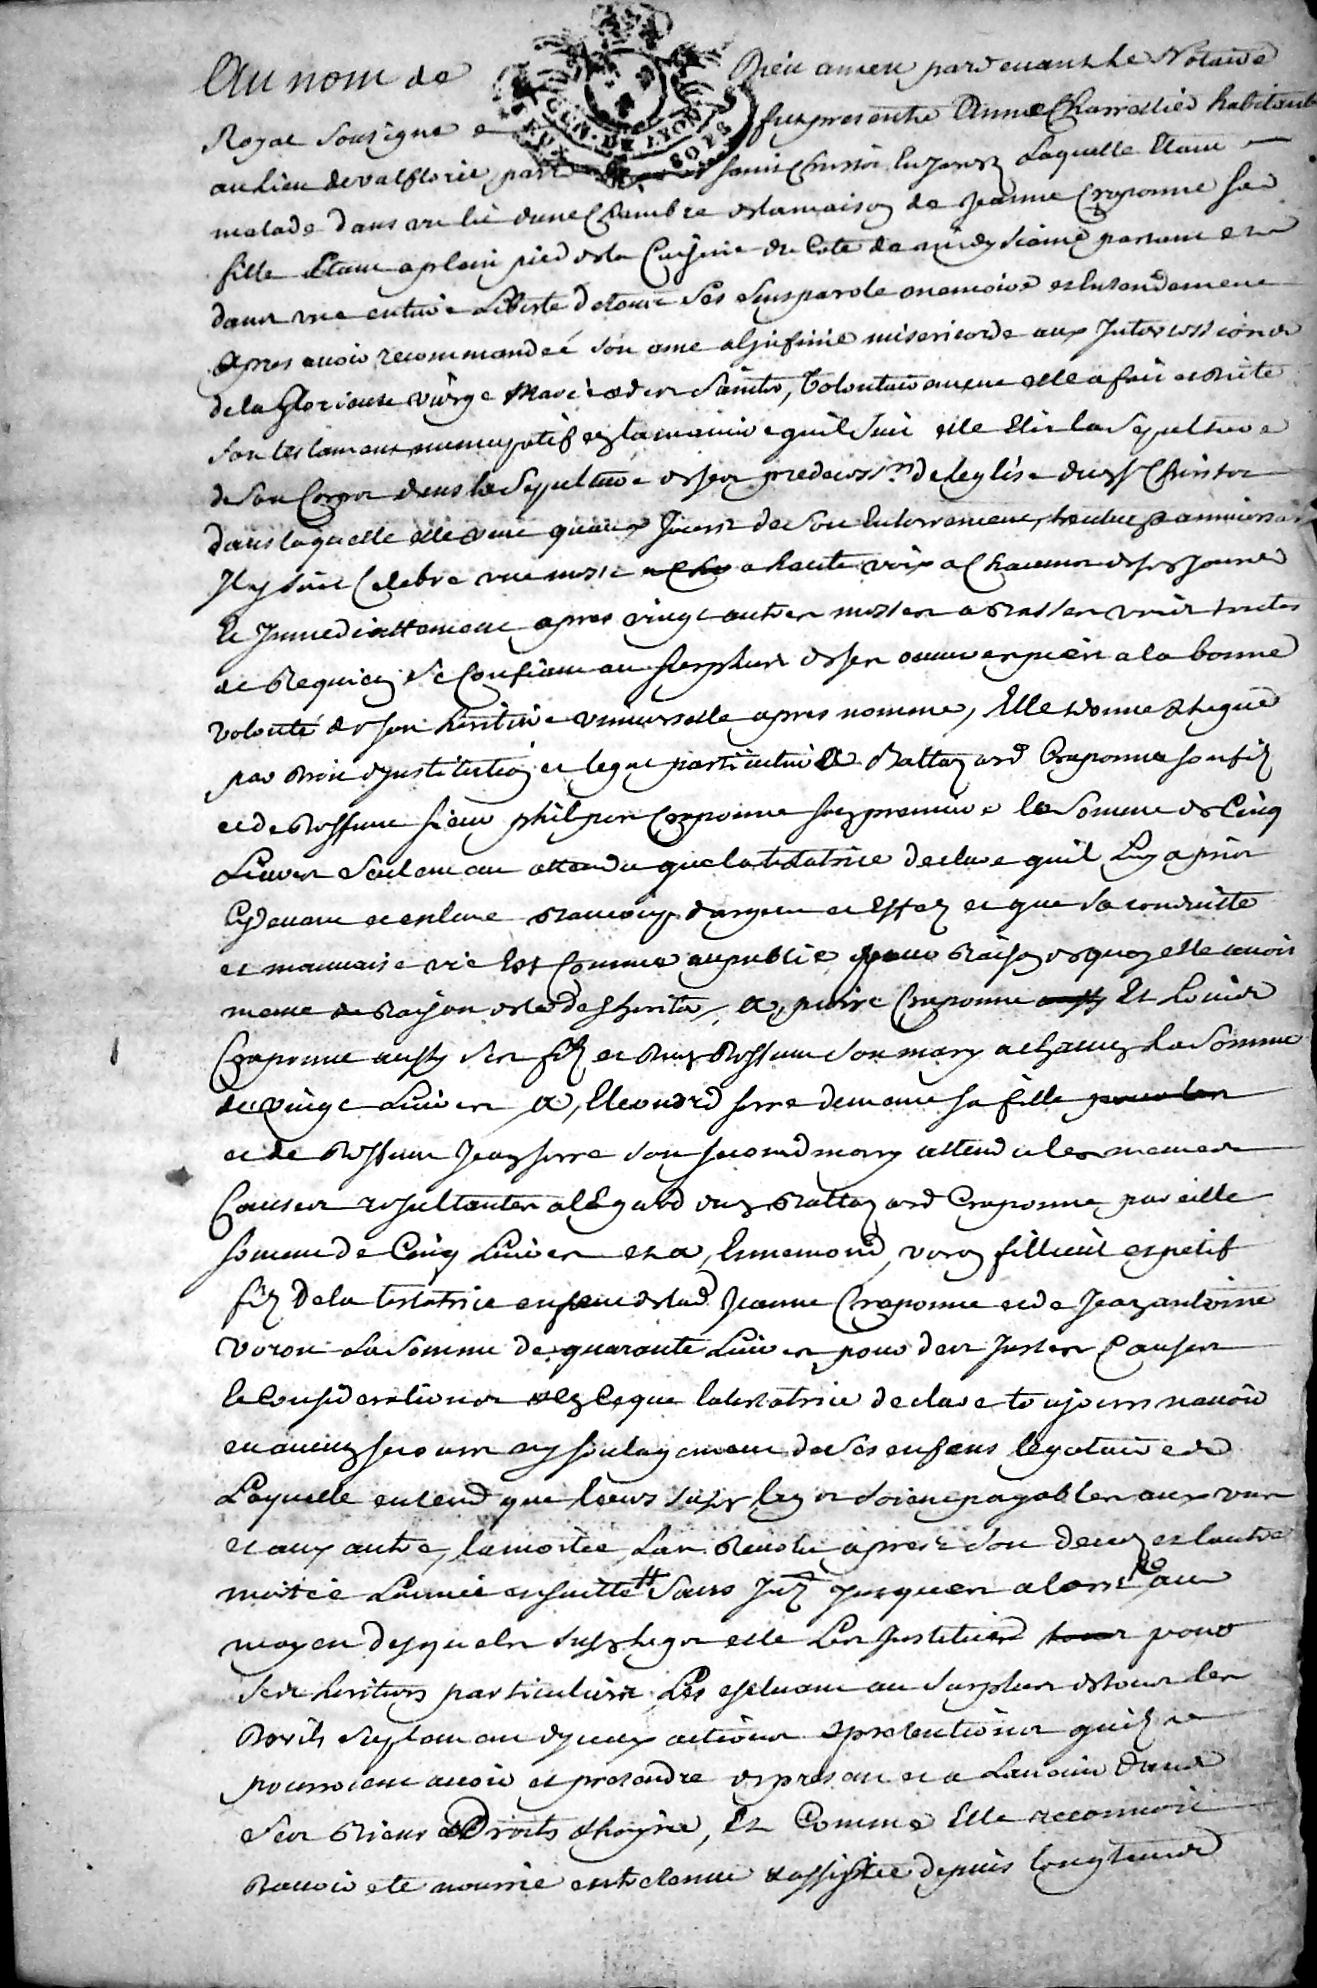 Au nom de Dieu amen pardevant le Notaire
GEN. DE LYON
SOLS
Royal sousigne et fut presente Anne Charretier habitante
au lieu de valflorie par saint Christo en Jarez Laquelle Etant
malade dans un lit dune Chambre de la maison de Jeanne Craponne sa
fille Etant a plain pied de la Cuisine du Cote de midy sième partant et
dans une entiere Liberte de tous ses sens parole memoire et entendement
apres avoir recommandeé son ame a linfinie misericorde aux Intercessions
de la Glorieuse vierge Marie et des Saints, volontairement elle a fait et dicte
son testament nuncupatif en la maniere quil suit elle Elit la Sepulture
de son Corps dans la Sepulture de ses predecess.rs de leglise dud st Christo
dans laquelle elle veut quaux Jours de son Enterrement, et anniversaire
Il y soit Celebre une messe a haute voix a Chacun de ses Jours
Et Immediattement apres vingt autres messes a basses voix toutes
de Requiem se Confiant au surplus de ses œuvres pies a la bonne
volonte de son heritiere universelle apres nommé, Elle donne & legue
par droit dinstitution et legat particulier A Baltazard Craponne son filz
et de deffunt sieur philipes Craponne son premier la Somme de Cinq
Livres seulement attendu que la testatrice declare quil Luy a prins
Cydevant et enleve beaucoup dargent et Effetz et que sa conduitte
et mauvaise vie Est Connue au public pour Raison de quoy elle auroit
meme Raison de le desheriter, A, pierre Craponne Et Louis
Craponne aussy ses filz et dud deffunt son mary a chacung la Somme
de vingt Livres A, Eleonord serre demeure sa fille
et de deffunt Jean serre son second mary attendu les memes
Causes resultantes a lEgard dud Baltazard Craponne pareille
somme de Cinq Livres et a, Ennemond voron filleuil et petit
filz de la testatrice enfant de lad Jeanne Craponne et de Jean antoine
voron La Somme de quarante Livres pour des Justes Causes
Et Considerations et En Ce que la testatrice declare toujours navoir
eu aucung secours ny soulagement de ses enfans legataires
Laquelle entend que leurs susd legs soient payables aux uns
et aux autres, la moitie Lan Revolu apres son deces et lautre
moitie Lannée ensuitte sans Jnt Jusques alors au
moyen desquels susd legs elle Les Institue pour
ses heritiers particuliers Les excluant au surplus de tous les
droits suplement dyceux actions & pretentions quilz
pourroient avoir et pretendre de present et a Lavenir dans
ses biens & Droits & hoyrie, Et Comme Elle reconnoit
davoir ete nourrie entretenue & assistée depuis longtemps